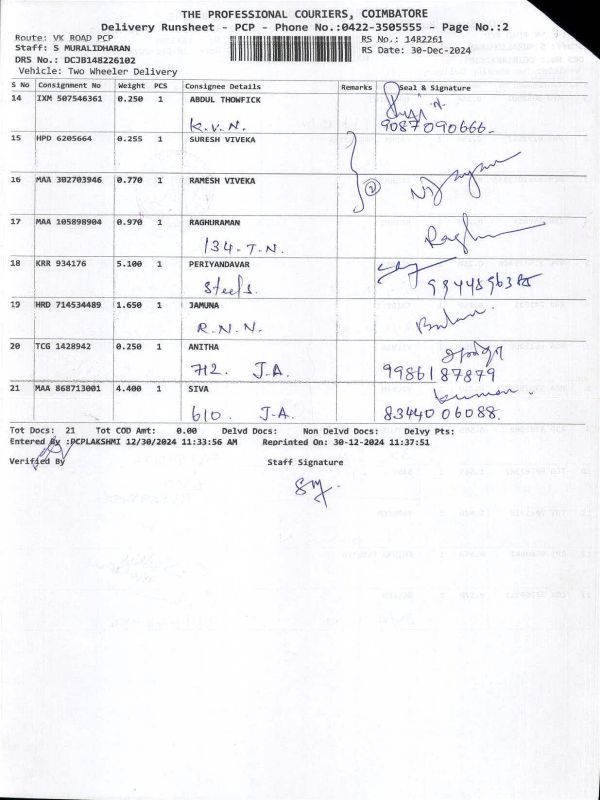 THE PROFESSIONAL COURIERS, COIMBATORE
Delivery Runsheet - PCP - Phone No.:0422-3505555 - Page No.:2
Route: VK ROAD PCP RS No.: 1482261
Staff: S MURALIDHARAN RS Date: 30-Dec-2024
DRS No.: DCJB148226102
Vehicle: Two Wheeler Delivery
S No Consignment No Weight PCS Consignee Details Remarks Seal & Signature
14 IXM 507546361 0.250 1 ABDUL THOWFICK
K.V.N. 9087090666.
15 HPD 6205664 0.255 1 SURESH VIVEKA
16 MAA 302703946 0.770 1 RAMESH VIVEKA 2
17 MAA 105898904 0.970 1 RAGHURAMAN
134-T.N.
18 KRR 934176 5.100 1 PERIYANDAVAR
Steels.
19 HRD 714534489 1.650 1 JAMUNA
R.N.N.
20 TCG 1428942 0.250 1 ANITHA
712. J.A. 9986187879
21 MAA 868713001 4.400 1 SIVA kumar.
610. J.A. 8344006088.
Tot Docs: 21 Tot COD Amt: 0.00 Delvd Docs: Non Delvd Docs: Delvy Pts:
Entered By :PCPLAKSHMI 12/30/2024 11:33:56 AM Reprinted On: 30-12-2024 11:37:51
Verified By Staff Signature